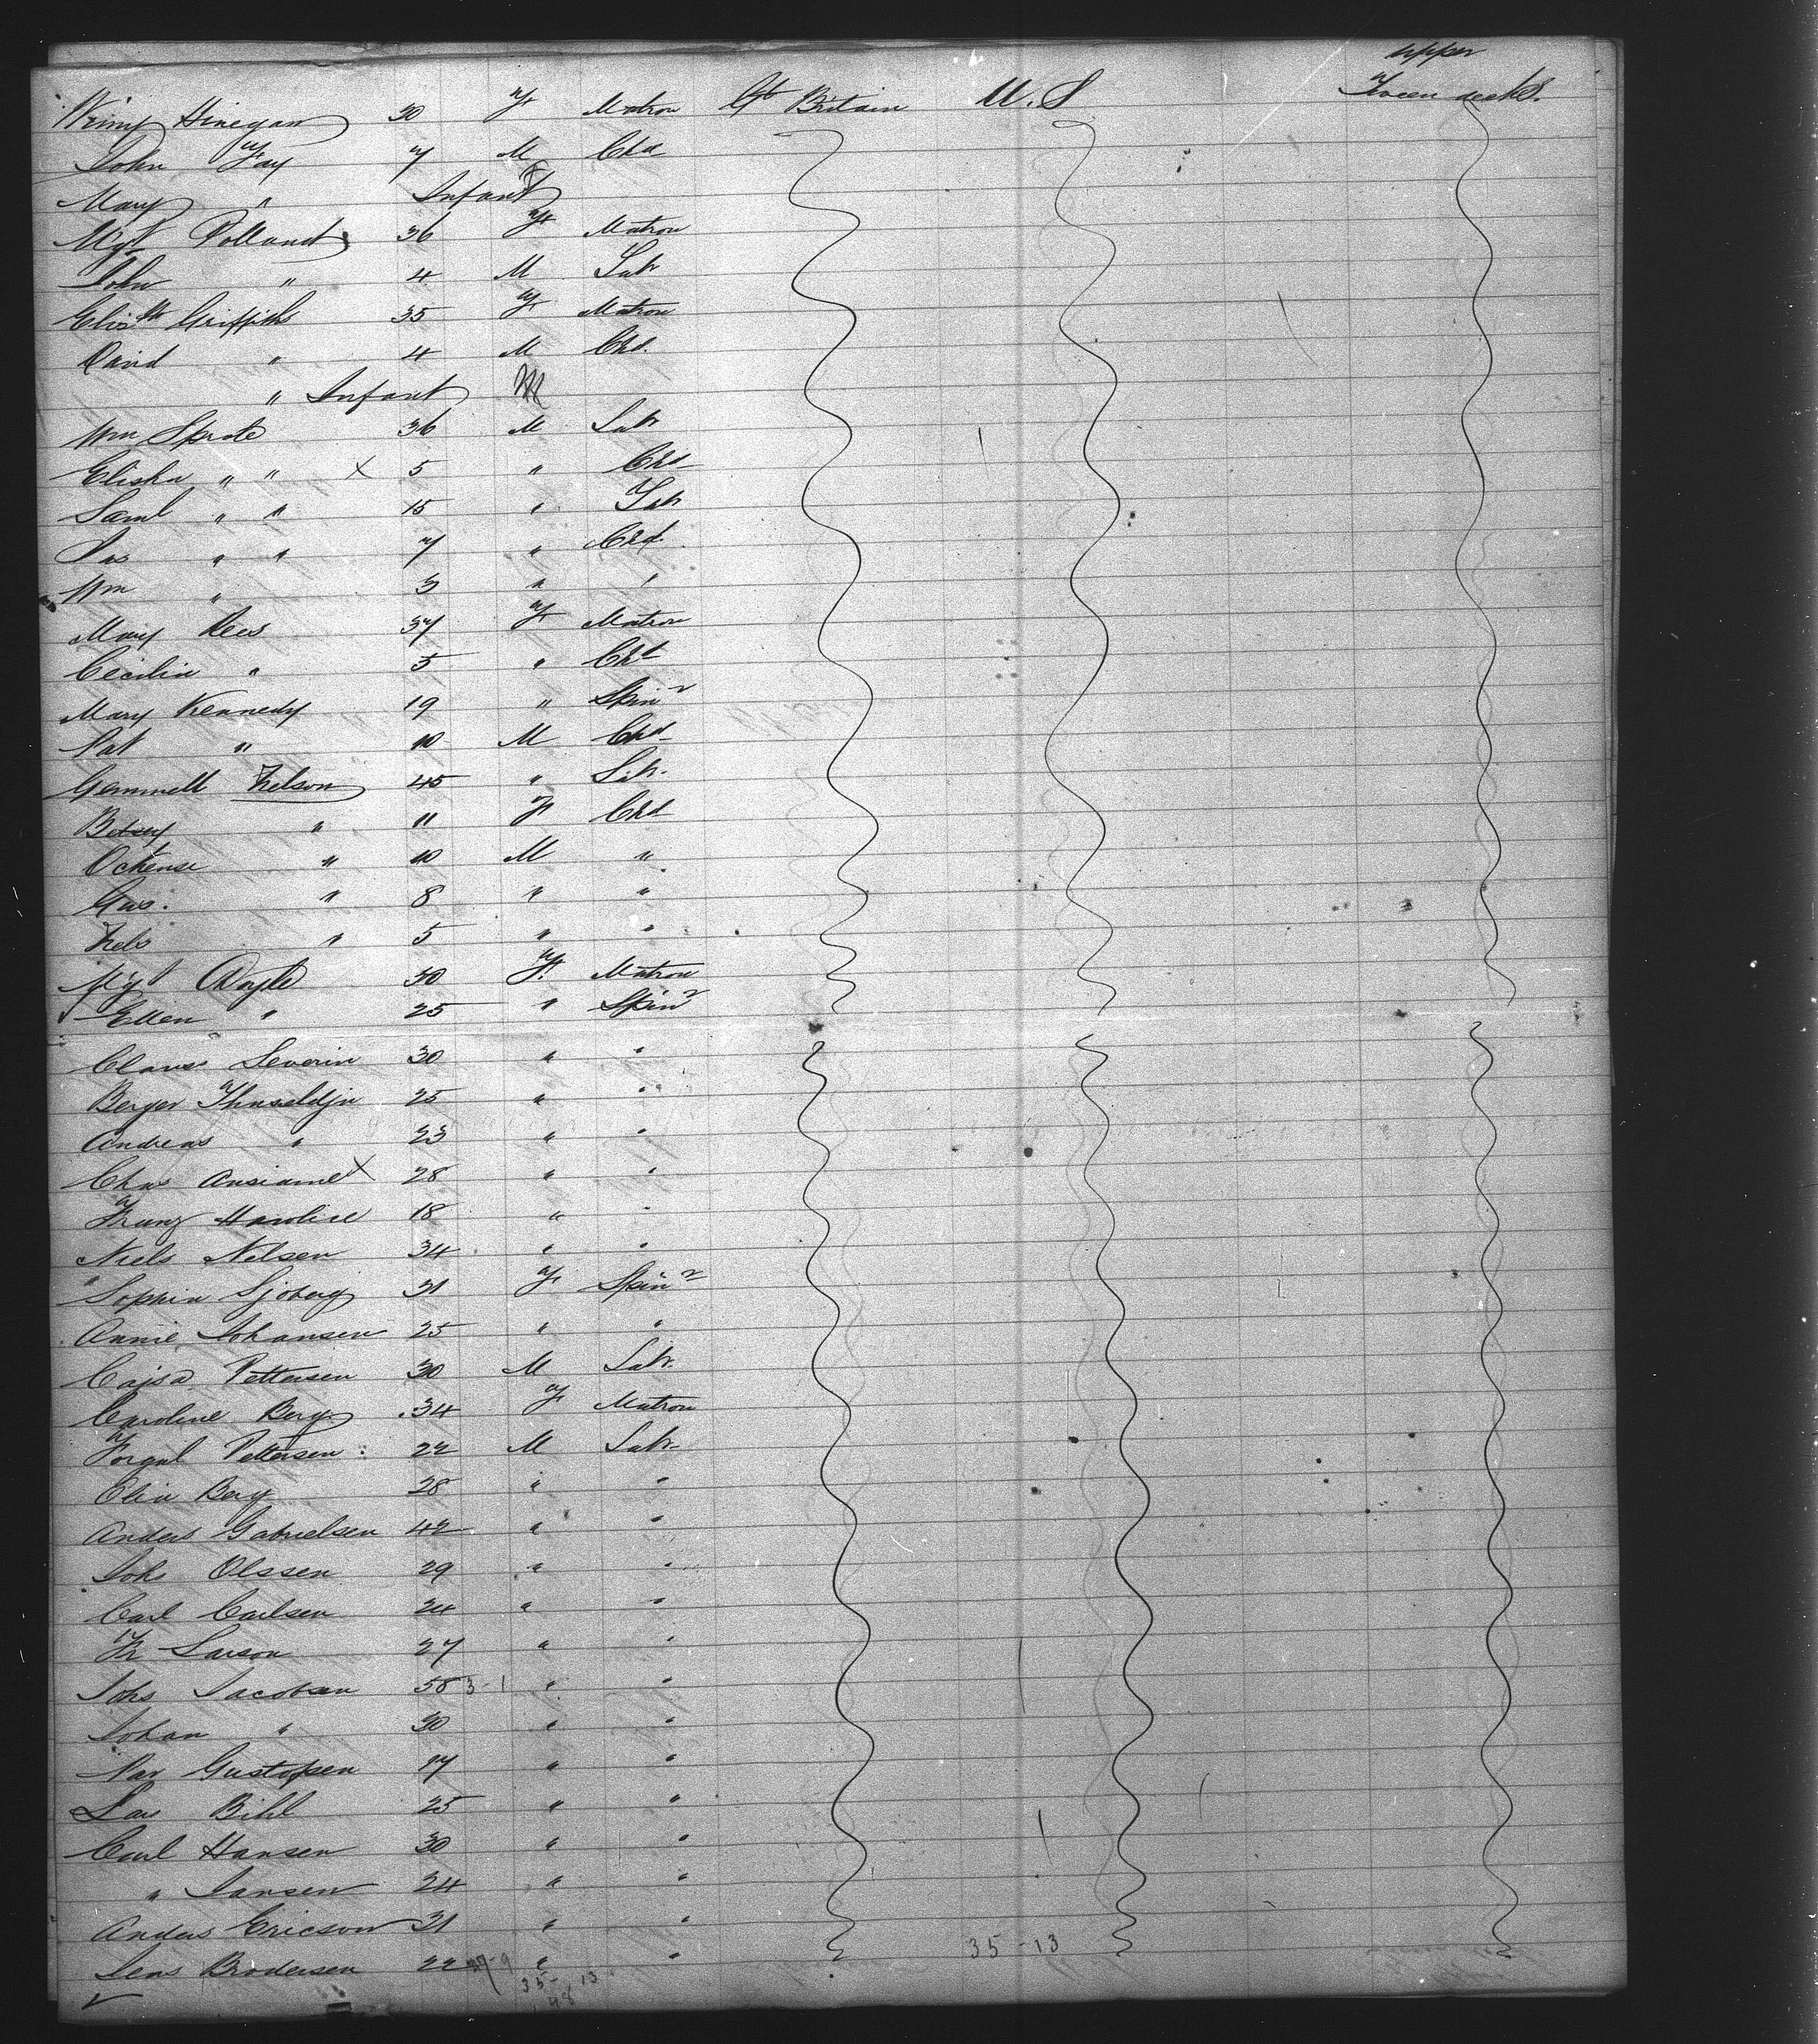 upper
Winny Hinegan 30 F Matron Gt Britain U.S Tween decks.
John Fay 7 M Chd
Mary " Infant F
Mgt Polland 36 F Matron
John " 4 M Lab
Elizth Griffiths 35 F Matron
David " 4 M Chd.
" Infant M
Wm Sprote 36 M Lab
Elisha " " X 5 " Chd
Saml " " 15 " Lab
Jas " " 7 " Chd.
Wm " 3 " "
Mary Rees 37 F Matron
Cecilia " 5 " Chd
Mary Kennedy 19 " Spinr
Pat " 10 M Chd
Gemmell Nelson 45 " Lab.
Betsey " 11 F Chd
" 10 M "
Gus. " 8 " "
Nels " 5 " "
Mgt Doyle 30 F. Matron
Ellen " 25 " Spinr
Claus Severin 30 " "
Berger 25 " "
Andreas " 23 " "
Chas X 28 " "
Franz 18 " "
Niels Nelsen 34 " "
Sophia Sjoberg 31 F Spinr
Annie Johansen 25 " "
Cajsa Pettersen 30 M Lab.
Caroline Berg 34 F Matron
Pettersen 22 M Lab.
Olia Berg 28 " "
Anders Gabrielsen 42 " "
Johs Olssen 29 " "
Carl Carlsen 24 " "
Fr Larson 27 " "
Johs Jacobsen 58 3-1 " "
Johan " 30 " "
Gustofsen 17 " "
Lars Bihl 25 " "
Carl Hansen 30 " "
" Jansen 24 " "
Anders Ericson 31 " "
Jens Brodersen 22 " " 35-13
35-13
48